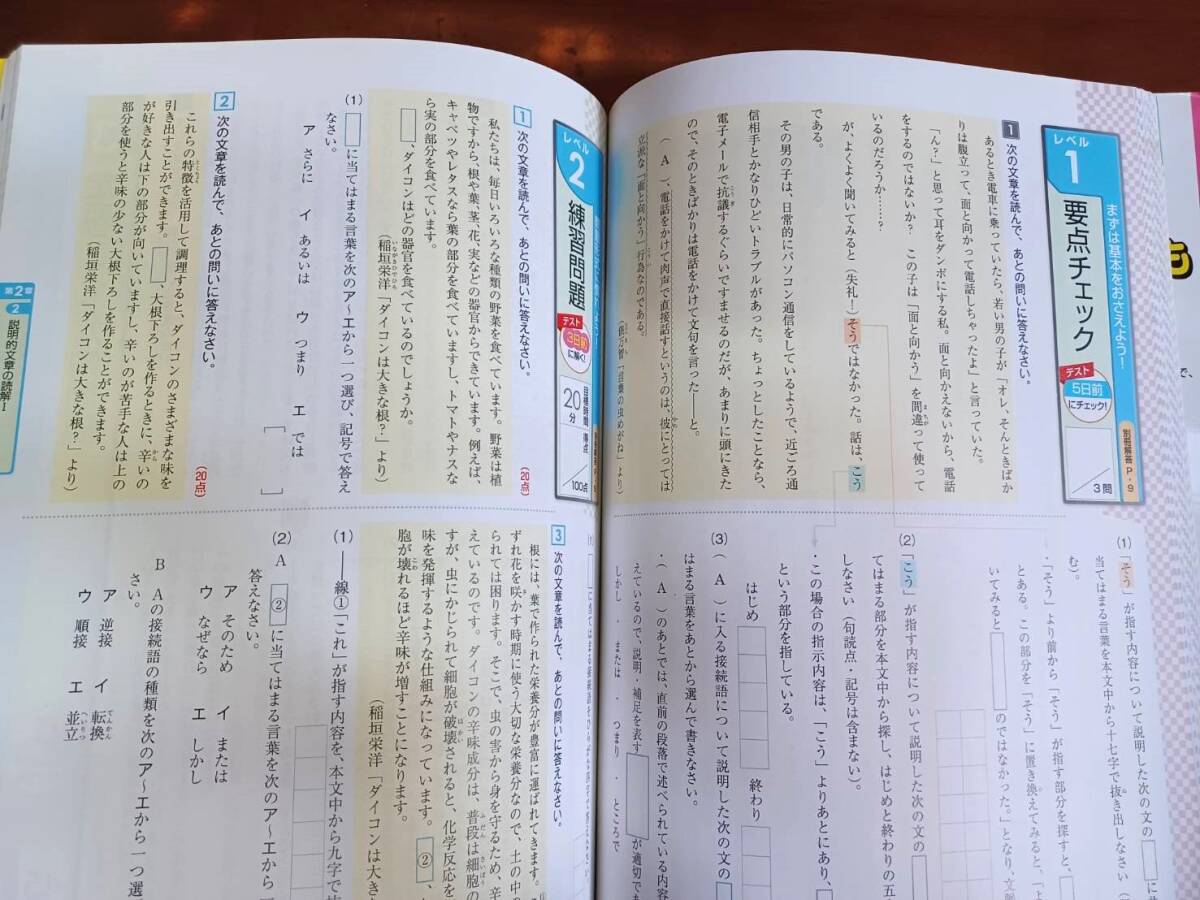 まずは基本をおさえよう!
レベル
1
要点チェック
テスト
5日前
にチェック!
別冊解答 P.9
/3問
1 次の文章を読んで、あとの問いに答えなさい。
あるとき電車に乗っていたら、若い男の子が「オレ、そんときばか
りは腹立って、面と向かって電話しちゃったよ」と言っていた。
「ん?」と思って耳をダンボにする私。面と向かえないから、電話
をするのではないか? この子は「面と向かう」を間違って使って
いるのだろうか……?
が、よくよく聞いてみると(失礼)そうではなかった。話は、こう
である。
その男の子は、日常的にパソコン通信をしているようで、近ごろ通
信相手とかなりひどいトラブルがあった。ちょっとしたことなら、
電子メールで抗議するぐらいですませるのだが、あまりに頭にきた
ので、そのときばかりは電話をかけて文句を言った――と。
(A)、電話をかけて肉声で直接話すというのは、彼にとっては
立派な「面と向かう」行為なのである。
(俵万智「言葉の虫めがね」より)
(1) 「そう」が指す内容について説明した次の文の
当てはまる言葉を本文中から十七字で抜き出しなさい
む)。
・「そう」より前から「そう」が指す部分を探すと、
とある。この部分を「そう」に置き換えてみると、「よ
いてみると
のではなかった。」となり、文脈
(2) 「こう」が指す内容について説明した次の文の
てはまる部分を本文中から探し、はじめと終わりの五
しなさい(句読点・記号は含まない)。
・この場合の指示内容は、「こう」よりあとにあり、
という部分を指している。
はじめ
終わり
(3) (A)に入る接続語について説明した次の文の
はまる言葉をあとから選んで書きなさい。
・(A)のあとでは、直前の段落で述べられている内容
えているので、説明・補足を表す
が適切であ
しかし ・ または ・ つまり ・ ところで
レベル
2
練習問題
テスト
3日前
に解く!
目標時間
20分
得点
/100点
1 次の文章を読んで、あとの問いに答えなさい。
(20点)
私たちは、毎日いろいろな種類の野菜を食べています。野菜は植
物ですから、根や葉、茎、花、実などの器官からできています。例えば、
キャベツやレタスなら葉の部分を食べていますし、トマトやナスな
ら実の部分を食べています。
、ダイコンはどの器官を食べているのでしょうか。
(稲垣栄洋「ダイコンは大きな根?」より)
(1) に当てはまる言葉を次のア~エから一つ選び、記号で答え
なさい。
ア さらに イ あるいは ウ つまり エ では
[ ]
2 次の文章を読んで、あとの問いに答えなさい。
(20点)
これらの特徴を活用して調理すると、ダイコンのさまざまな味を
引き出すことができます。 、大根下ろしを作るときに、辛いの
が好きな人は下の部分が向いていますし、辛いのが苦手な人は上の
部分を使うと辛味の少ない大根下ろしを作ることができます。
(稲垣栄洋「ダイコンは大きな根?」より)
3 次の文章を読んで、あとの問いに答えなさい。
根には、葉で作られた栄養分が豊富に運ばれてきます。
ずれ花を咲かす時期に使う大切な栄養分なので、土の中の
られては困ります。そこで、虫の害から身を守るため、辛
えているのです。ダイコンの辛味成分は、普段は細胞の
すが、虫にかじられて細胞が破壊されると、化学反応を
味を発揮するような仕組みになっています。 ② 、
胞が壊れるほど辛味が増すことになります。
(稲垣栄洋「ダイコンは大き
(1) ――線①「これ」が指す内容を、本文中から九字で
(2) A ② に当てはまる言葉を次のア~エから
答えなさい。
ア そのため イ または
ウ なぜなら エ しかし
B Aの接続語の種類を次のア~エから一つ選
さい。
ア 逆接 イ 転換
ウ 順接 エ 並立
第2章
2
説明的文章の読解Ⅰ